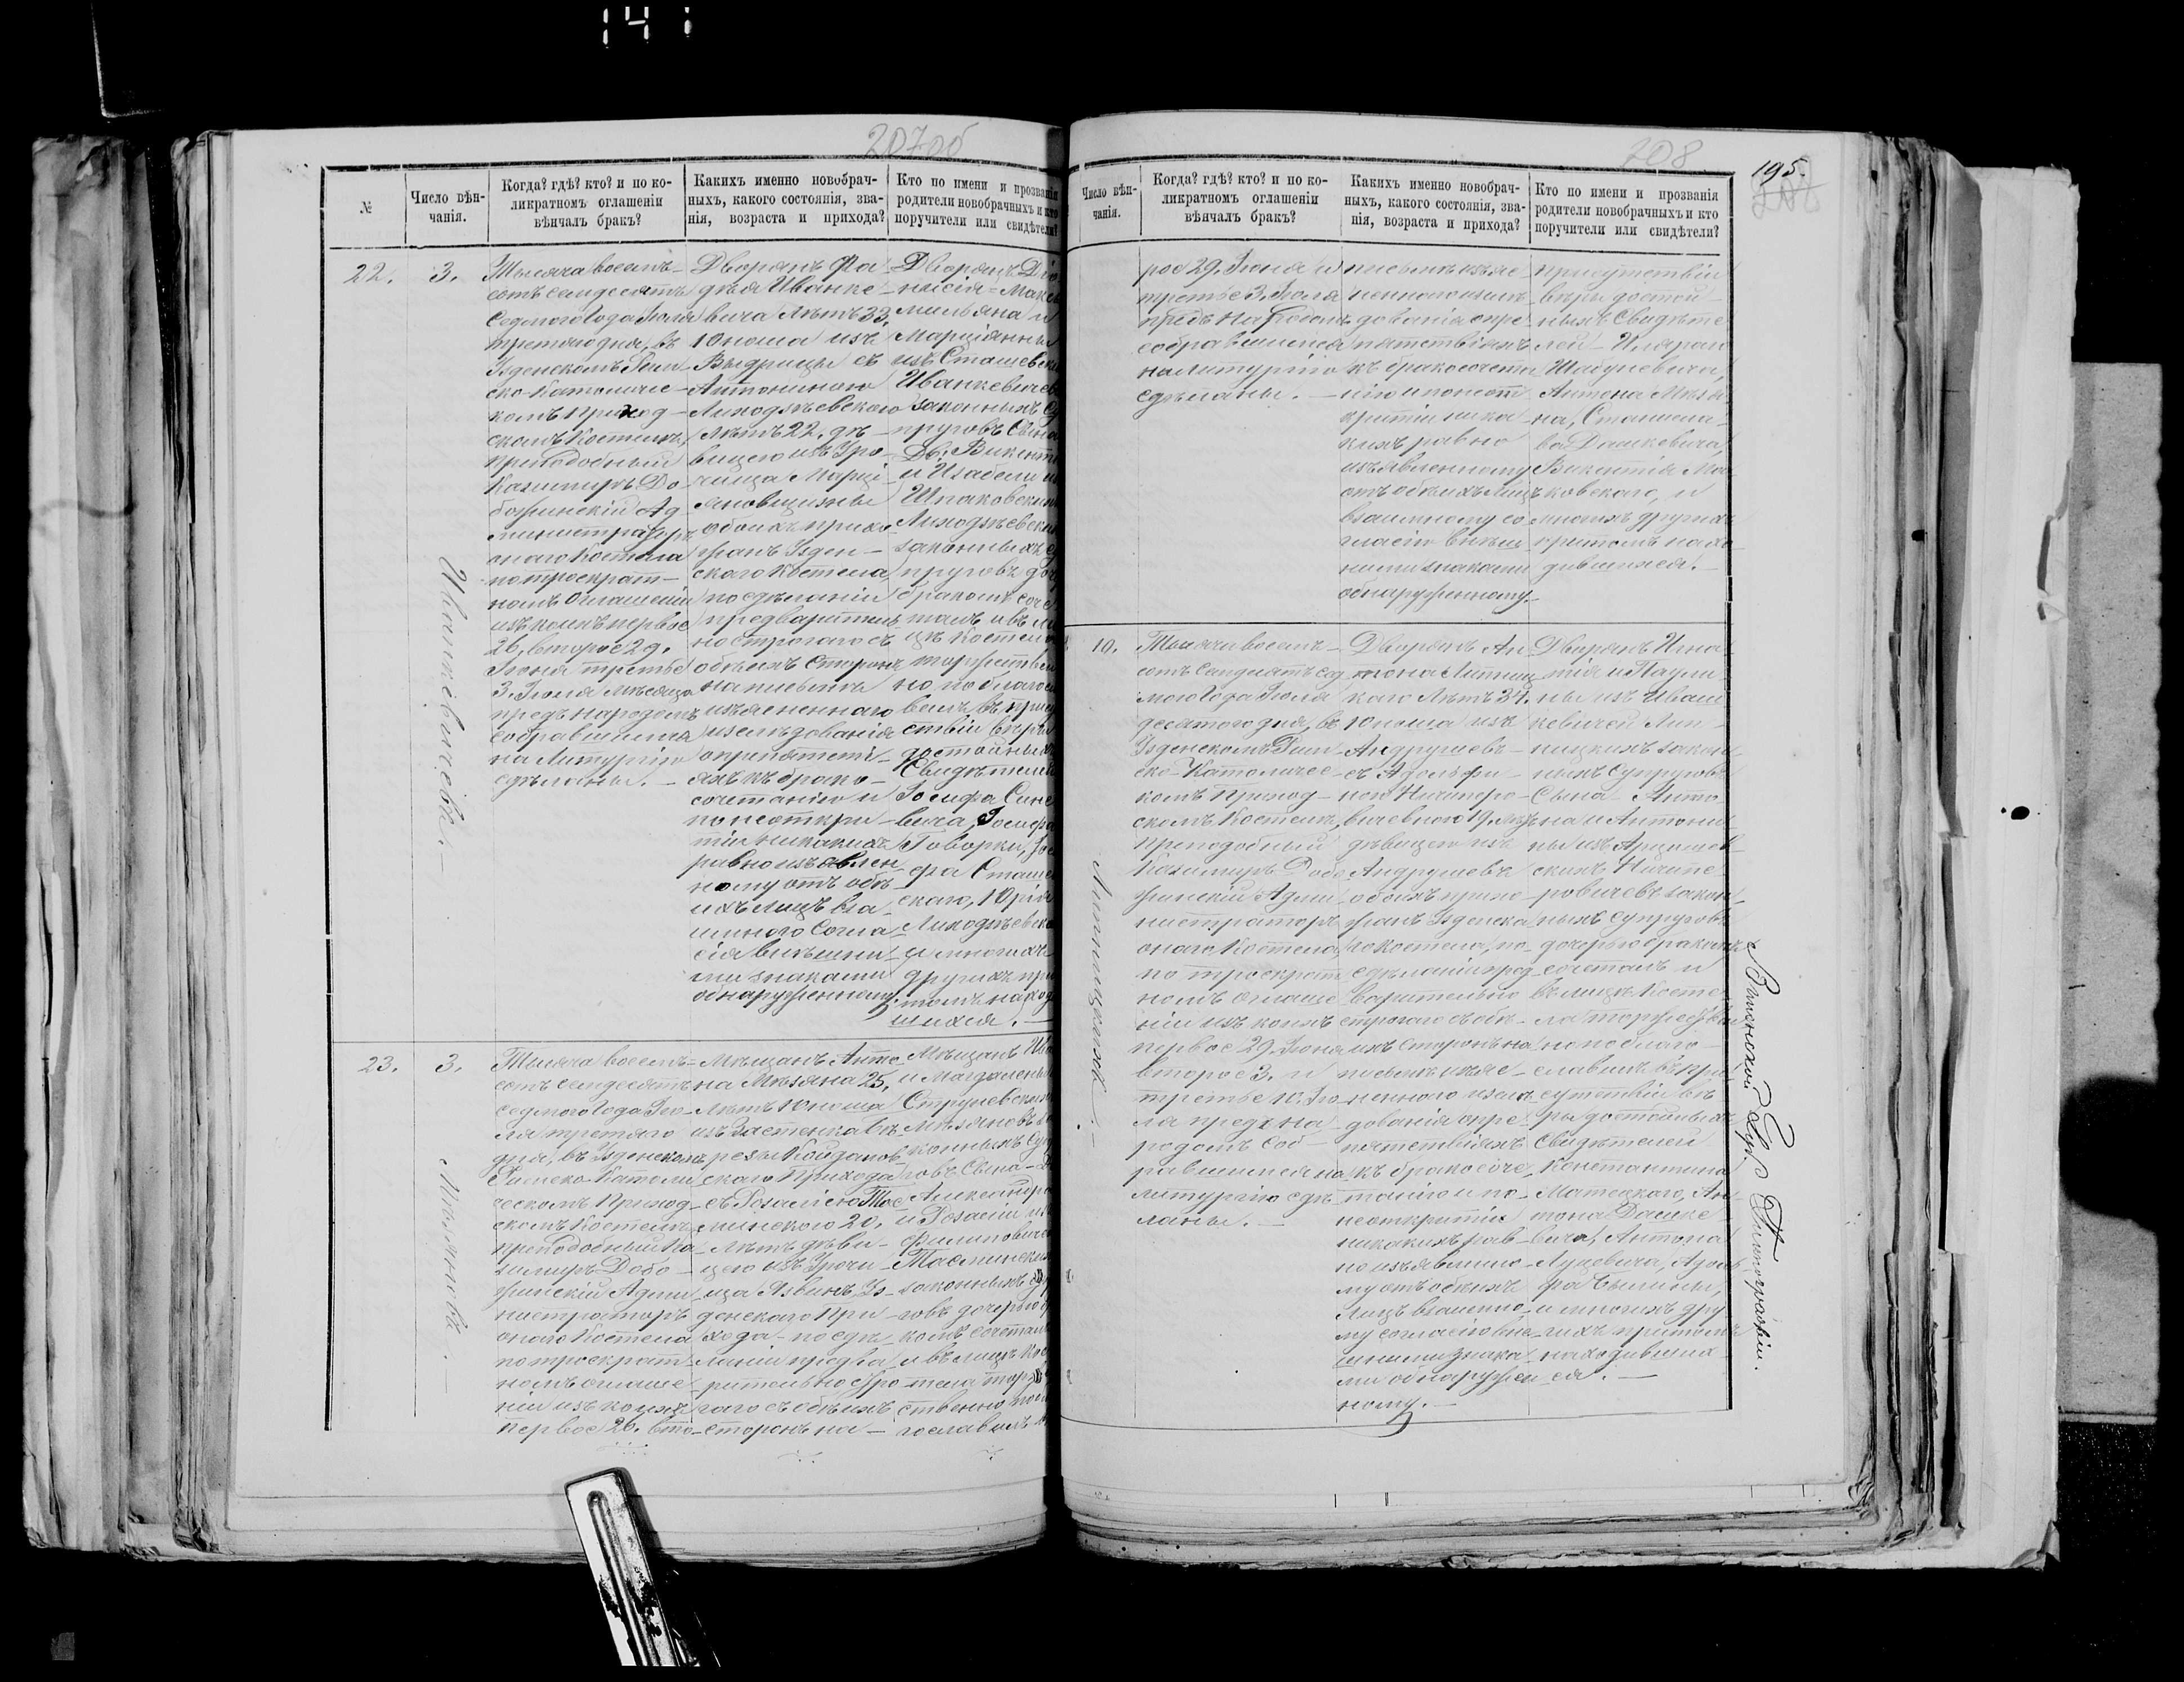 141
207об
№
Число вѣн-
чанія.
Когда? гдѣ? кто? и по ко-
ликратномъ оглашеніи
вѣнчалъ бракъ?
Какихъ именно новобрач-
ныхъ, какого состоянія, зва-
нія, возраста и прихода?
Кто по имени и прозванія
родители новобрачныхъ и кто
поручители или свидѣтели?
22.
3.
Иванкевичевъ.
Тысяча восемь-
сотъ семдесятъ
седмого Года Іюля
третяго дня, въ
Узденскомъ Рим-
ско-Католичес-
комъ Приход-
скомъ Костелѣ,
преподобный
Казимиръ До-
божинскій Ад-
министраторъ
онаго Костела
по троекрат-
номъ оглашеніи
изъ коихъ первое
26, второе 29.
Іюня третье
3. Іюля мѣсяца
предъ народомъ
собравшимся
на Литургію
сдѣланы.
Дворянъ Фа-
дѣя Иванке-
вича лѣтъ 33,
юноша изъ
Выдрицы съ
Антониною
Лиходѣевскою
лѣтъ 22. дѣ-
вицею изъ Уро-
чища Марці-
яновщизны
обоихъ прихо-
жанъ Узден-
скаго Костела,
по сдѣланіи
предваритель-
но строгаго съ
обѣихъ сторонъ
на письмѣ
изъясненнаго
изслѣдованія
о препятстві-
яхъ къ брако-
сочетанію и
по неоткры-
тіи никакихъ
равно изъявлен-
ному отъ обѣ-
ихъ лицъ вза-
имного согла-
сія внѣшни-
ми знаками
обнаруженному.
Дворянъ Діо
нисія-Макси
мильяна и
Марціянны
изъ Сташевски
Иванкевичев
законныхъ су
пруговъ Сына
Дв. Викенті
и Изабели из
Шпаковских
Лиходѣевски
законныхъ су
пруговъ доч
бракомъ соче
талъ и въ ли
цѣ Костела
торжествен
но поблагос
вилъ, въ прис
ствіи вѣры
достойныхъ
Свидѣтелей
Іосифа Сине
вича, Іосифа
Говорки, Іос
фа Сташе
скаго, Юрія
Лиходѣевско
и многихъ
другихъ при
томъ наход
шихся.
23.
3.
Мѣзяновъ.
Тысяча восемь-
сотъ семдесятъ
седмого Года Ію-
ля третяго
дня, въ Узденскомъ
Римско-Католи
ческомъ Приход-
скомъ Костелѣ
преподобный Ка
зимиръ Добо-
жинскій Адми
нистраторъ
онаго Костела
по троекрат
номъ оглаше
ніи изъ коихъ
первое 26. вто-
Мѣщанъ Анто-
на Мѣзяна 25,
лѣтъ юноша
изъ застенка Бѣ-
резы Койданов
скаго Прихода
съ Розаліею Тас
минскою 20.
лѣтъ дѣви-
цею изъ Урочи-
ща Язвинъ Уз-
денскаго При
хода - по сдѣ
ланіи предва
рительно стро
гаго съ обѣихъ
сторонъ на
Мѣщанъ Ив
и Магдалены
Струневских
Мѣзяновъ за
конныхъ суп
ровъ Сына
Александра
и Розаліи из
Филиповичев
Тасминских
законныхъ су
говъ дочерью б
комъ сочеталъ
и въ лицѣ Кос
тела торже
ственно побл
гославилъ
208
195.
Число вѣн-
чанія.
Когда? гдѣ? кто? и по ко-
ликратномъ оглашеніи
вѣнчалъ бракъ?
Какихъ именно новобрач-
ныхъ, какого состоянія, зва-
нія, возраста и прихода?
Кто по имени и прозванія
родители новобрачныхъ и кто
поручители или свидѣтели?
рое 29. Іюня и
третье 3. Іюля
предъ народомъ
собравшимся
на Литургію
сдѣланы.
письмѣ изъяс
неннаго изслѣ
дованія о пре
пятствіяхъ
къ бракосочета
нію и по неот
крытіи ника
кихъ равно
изъявленному
отъ обѣихъ лицъ
взаимному со
гласію внѣш
ними знаками
обнаруженному.
присутствіи
вѣры достой
ныхъ Свидѣте
лей
Шабуневича,
Антона Мѣзя
на, Станисла
ва Дашкевича,
Викентія Ма
ковскаго, и
многихъ другихъ
притомъ нахо
дившихся.
10.
Липницкихъ.
Тысяча восемь-
сотъ семдесятъ сед
мого Года Іюля
десятого дня, въ
Узденскомъ Рим
ско-Католичес-
комъ Приход-
скомъ Костелѣ,
преподобный
Казимиръ Добо
жинскій Адми
нистраторъ
онаго Костела,
по троекрат
номъ оглаше
ніи изъ коихъ
первое 29. Іюня
второе 3. и
третье 10. Ію
ля предъ на
родомъ соб
равшимся на
литургію сдѣ
ланы.
Дворянъ Ан
тона Липниц
каго лѣтъ 34.
юноша изъ
Андрушевъ
съ Адольфи
ною Ничипоро
вичевною 19. лѣтъ
дѣвицею изъ
Андрушевъ
обоихъ прихо
жанъ Узденска
го Костела, по
сдѣланіи пред
варительно
строгаго съ обѣ
ихъ сторонъ на
письмѣ изъяс
неннаго изслѣ
дованія о пре
пятствіяхъ
къ бракосоче
танію и по
неоткрытіи
никакихъ рав
но изъявленно
му отъ обѣихъ
лицъ взаимно
му согласію внѣ
шними знака
ми обнаружен
ному.
Дворянъ Игна
тія и Паули
ны изъ Иваш
кевичей Лип
ницкихъ закон
ныхъ супруговъ
Сына Анто
на и Антони
ны изъ Арцишев
скихъ Ничипо
ровичевъ закон
ныхъ супруговъ
дочерью бракомъ
сочеталъ и
въ лицѣ Косте
ла торжествен
но поблаго
славилъ въ при
сутствіи вѣ
ры достойныхъ
Свидѣтелей
Константина
Матецкаго, Ан
тона Дашке
вича, Антона
Луцевича, Адоль
фа Былины,
и многихъ дру
гихъ притомъ
находивших
ся.
Виленской Губ. Типографіи.